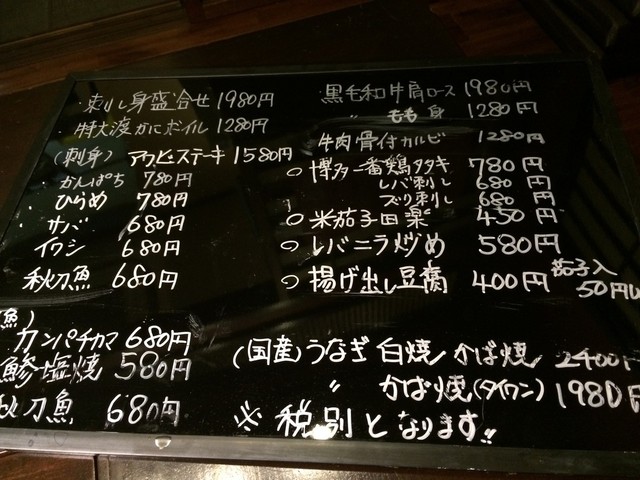 刺し身盛合せ 1980円
特大渡かにボイル 1280円
(刺身) アワビステーキ 1580円
・かんぱち 780円
・ひらめ 780円
・サバ 680円
・イワシ 680円
秋刀魚 680円
魚)
カンパチカマ 680円
鯵塩焼 580円
刀魚 680円
黒毛和牛肩ロース 1980円
〃 もも身 1280円
牛肉骨付カルビ 1280円
○博多一番鶏タタキ 780円
レバ刺し 680円
ズリ刺し 680円
○米茄子田楽 450円
○レバニラ炒め 580円
○揚げ出し豆腐 400円
茄子入
50円
(国産)うなぎ 白焼 かば焼 2400円
〃 かば焼(タイワン) 1980円
※税別となります!!